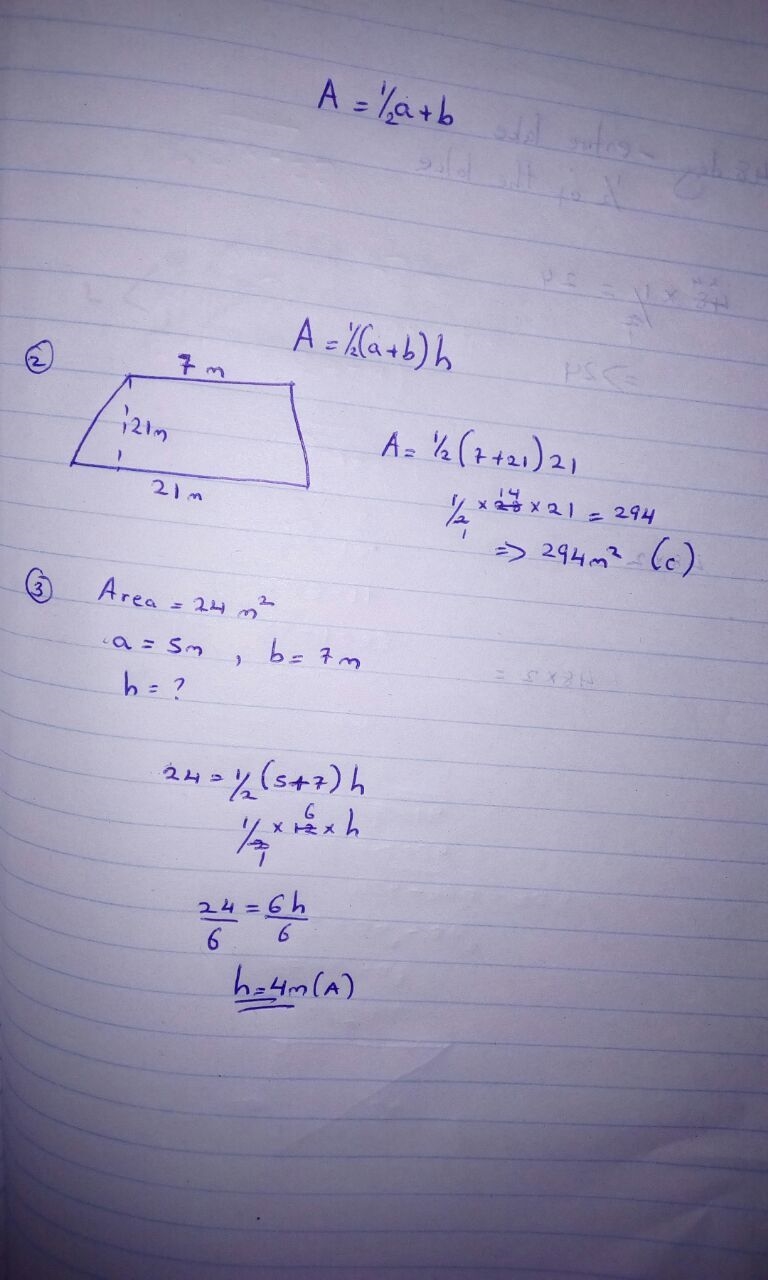 A = 1/2 a + b
A = 1/2(a+b) h
②
7 m
21m
21 m
A = 1/2 (7+21) 21
1/2 × 28 × 21 = 294
14
1
=> 294 m² (c)
③ Area = 24 m²
a = 5m , b = 7 m
h = ?
24 = 1/2 (5+7) h
1/2 × 12 × h
6
1
24 = 6h
6 6
h = 4m (A)